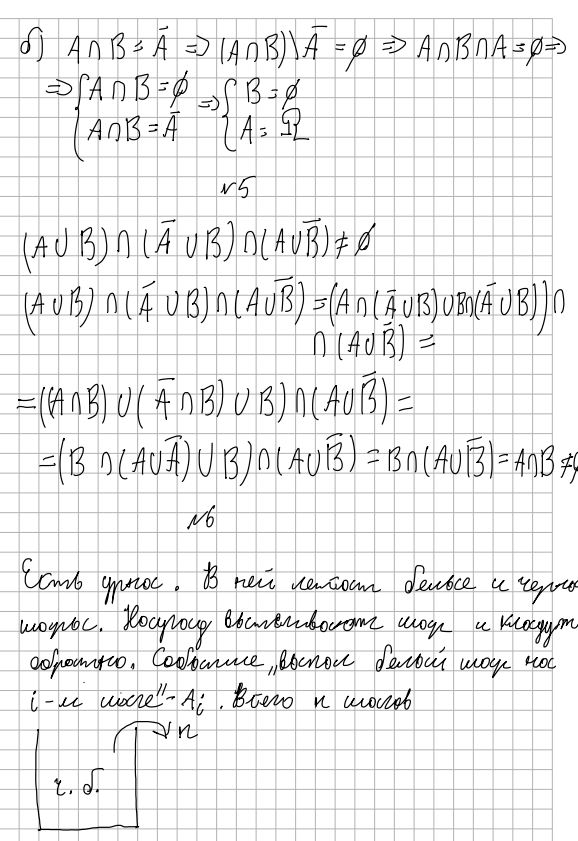 б) A∩B = Ā ⇒ (A∩B)\Ā = ∅ ⇒ A∩B∩A = ∅ ⇒
⇒ { A∩B = ∅ ⇒ { B = ∅
A∩B = Ā A = Ω
N5
(A∪B)∩(Ā∪B)∩(A∪B̄) ≠ ∅
(A∪B)∩(Ā∪B)∩(A∪B̄) = (A∩(Ā∪B)∪B∩(Ā∪B))∩
∩(A∪B̄) =
= ((A∩B)∪(Ā∩B)∪B)∩(A∪B̄) =
= (B∩(A∪Ā)∪B)∩(A∪B̄) = B∩(A∪B̄) = A∩B ≠ ∅
N6
Есть урна. В ней лежат белые и черные
шары. Наугад вытягивают шар и кладут
обратно. Событие "выпал белый шар на
i-м шаге" - Aᵢ. Всего n шагов
n
ч. б.